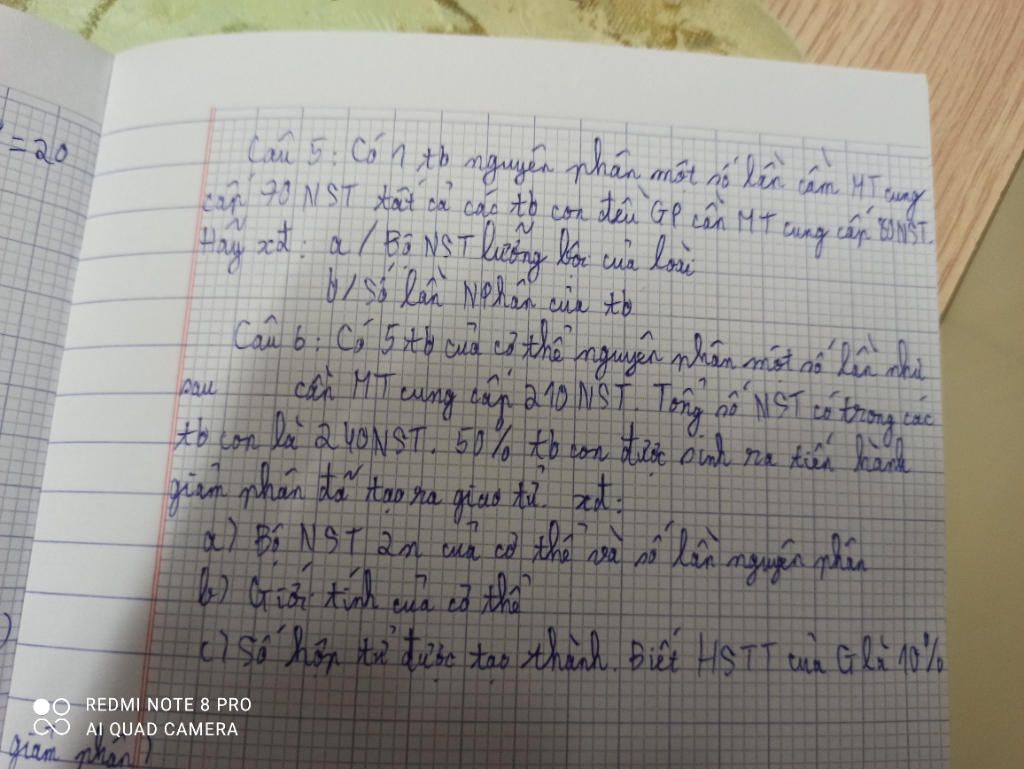 = 20
Câu 5: Có 1 tb nguyên phân một số lần cần MT cung
cấp 70 NST tất cả các tb con đều GP cần MT cung cấp 80NST.
Hãy xđ: a/ Bộ NST lưỡng bội của loài
b/ Số lần NPhân của tb
Câu 6: Có 5 tb của cơ thể nguyên phân một số lần như
sau cần MT cung cấp 210 NST. Tổng số NST có trong các
tb con là 240NST. 50% tb con được sinh ra tiến hành
giảm phân đã tạo ra giao tử. xđ:
a) Bộ NST 2n của cơ thể và số lần nguyên phân
b) Giới tính của cơ thể
c) Số hợp tử được tạo thành. Biết HSTT của G là 10%
)
REDMI NOTE 8 PRO
AI QUAD CAMERA
giảm phân)